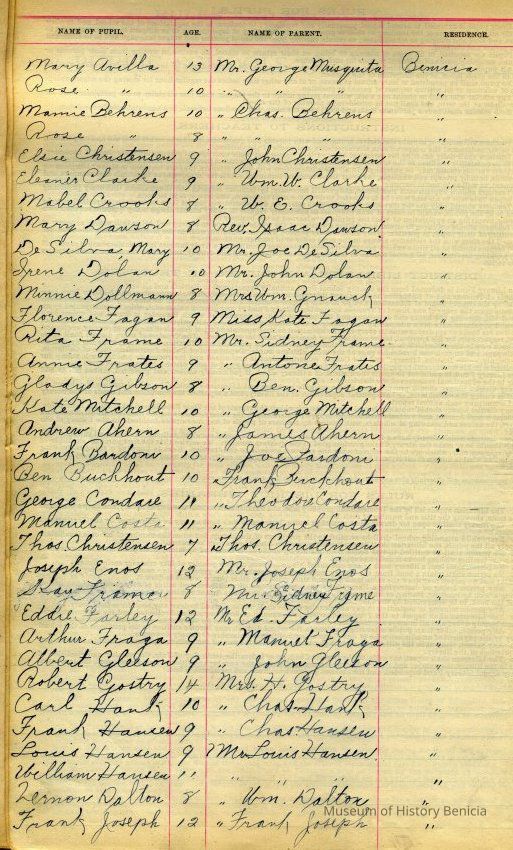 NAME OF PUPIL. AGE. NAME OF PARENT. RESIDENCE.
Mary Avilla 13 Mr. George Musquita Benicia
Rose " 10 " " " "
Mamie Behrens 10 " Chas. Behrens "
Rose " 8 " " " "
Elsie Christensen 9 " John Christensen "
Eleanor Clarke 9 " Wm. W. Clarke "
Mabel Crooks 8 " W. E. Crooks "
Mary Dawson 8 Rev. Isaac Dawson "
De Silva, Mary 10 Mr. Joe De Silva "
Irene Dolan 10 Mr. John Dolan "
Minnie Dollmann 8 Mrs Wm. Gnauck "
Florence Fagan 9 Miss Kate Fagan "
Rita Frame 10 Mr. Sidney Frame "
Annie Frates 9 " Antone Frates "
Gladys Gibson 8 " Ben. Gibson "
Kate Mitchell 10 " George Mitchell "
Andrew Ahern 8 " James Ahern "
Frank Bardoni 10 " Joe "
Ben Buckhout 10 " Frank Buckhout "
George Condare 11 " Theodore Condare "
Manuel Costa 11 " Manuel Costa "
Thos Christensen 7 " Thos. Christensen "
Joseph Enos 12 Mr. Joseph Enos "
Frame 8 Sidney Frame "
Eddie Farley 12 Mr Ed. Farley "
Arthur Fraga 9 " Manuel Fraga "
Albert Gleeson 9 " John Gleeson "
Robert Gostry 14 Mrs. H. Gostry "
Carl Hank 10 " Chas. Hank "
Frank Hansen 9 " Chas Hansen "
Louis Hansen 9 Mr Louis Hansen. "
William Hansen 11 " " " "
Vernon Dalton 8 " Wm. Dalton "
Frank Joseph 12 " Frank Joseph "
Museum of History Benicia